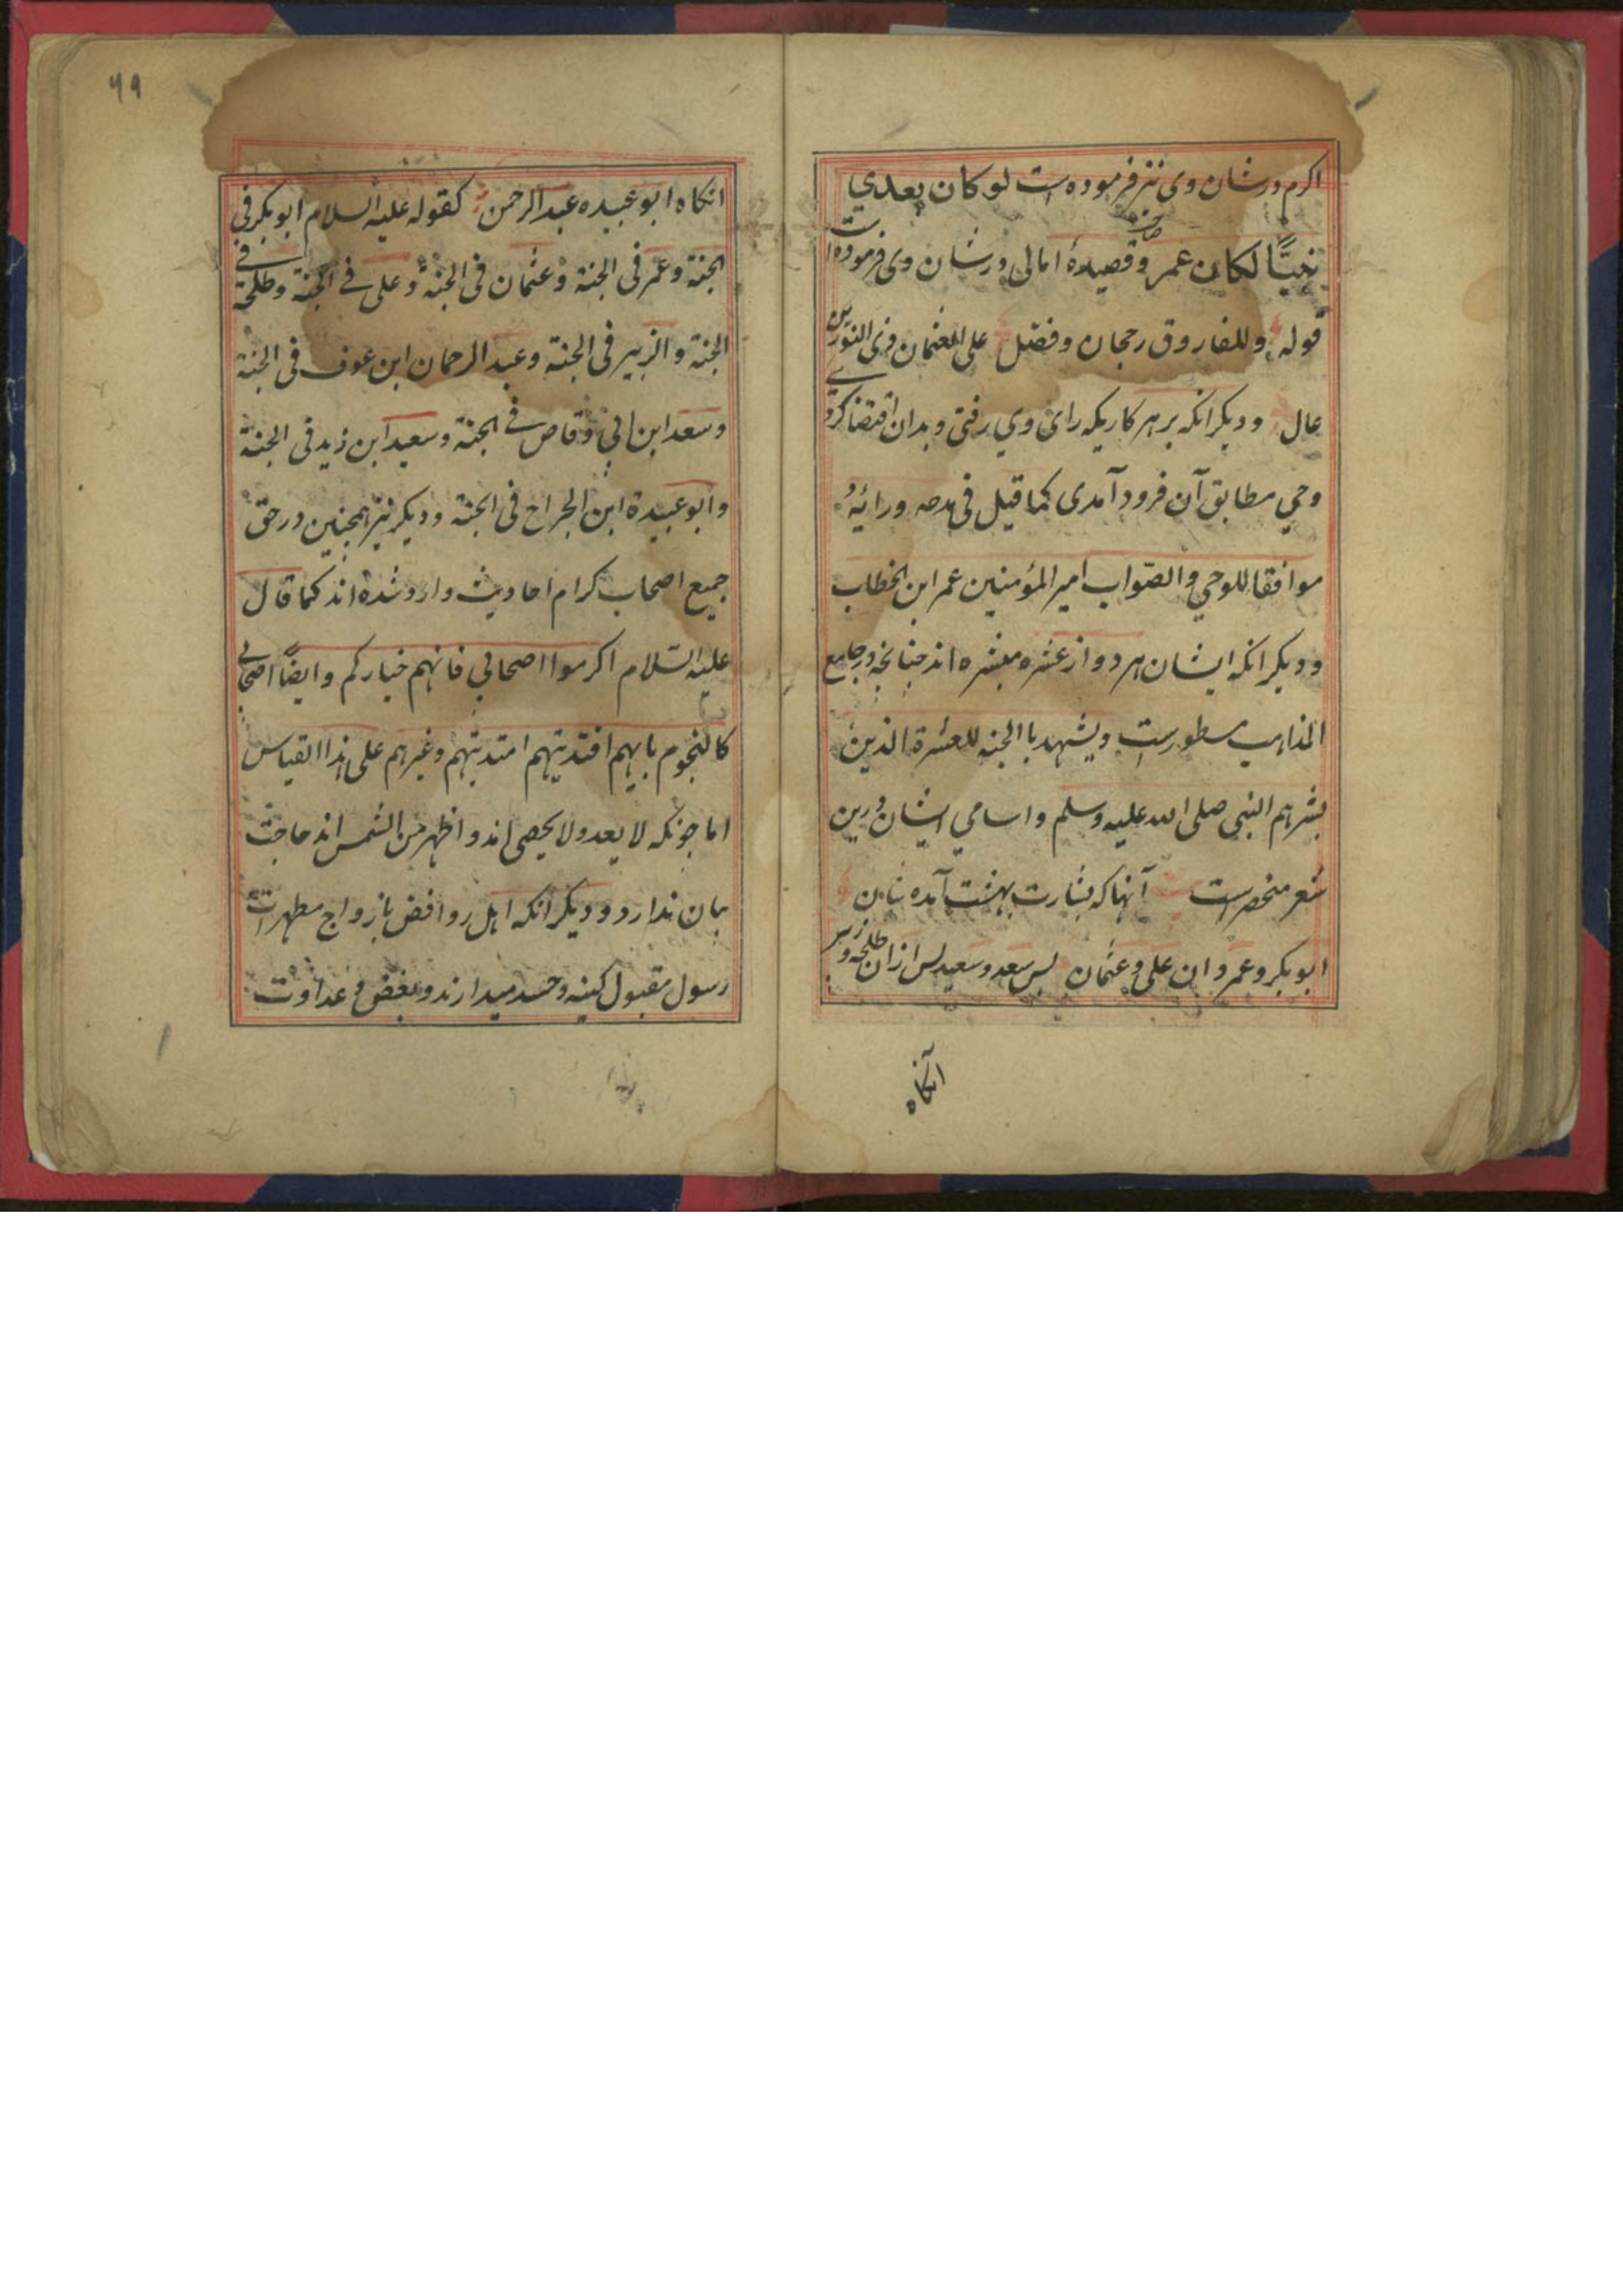 اکرم در شان وی نیز فرموده است لو کان بعدي
نبیًّا لکان عمر و صاحب قصیدهٔ امالی در شان وی فرموده است
قوله وللفاروق رجحان وفضل علی العثمان ذی النورین
عال و دیکر انکه بر هر کاریکه رای وي رفتی و بدان اقتضا کردے
وحي مطابق آن فرود آمدی کما قیل فی مدحه ورائیهٔ
موافقا للوحي والصّواب امیر المؤمنین عمر ابن الخطاب
و دیکر انکه ایشان هر دو از عشره مبشره اند چنانچه در جامع
المذاهب مسطورست ویشهد با الجنه للعشرة الذین
بشرهم النبی صلی الله علیه وسلم و اسامي ایشان درین
شعر منحصرست آنها که بشارت بهشت آمده شان
ابوبکر و عمر دان علی و عثمان پس سعد و سعید پس ازان طلحه و زبیر
آنکاه
۶۹
انکاه ابو عبیده عبد الرحمن کقوله علیه السلام ابوبکر فی
الجنة و عمر فی الجنة و عثمان فی الجنة و علی فے الجنة و طلحة فے
الجنة و الزبیر فی الجنة و عبد الرحمان ابن عوف فی الجنة
و سعد ابن ابي وقاص فے الجنة و سعید ابن زید فی الجنة
و ابو عبیدة ابن الجراح فی الجنة و دیکر نیز همچنین در حق
جمیع اصحاب کرام احادیث وارد شده اند کما قال
علیه السّلام اکرموا اصحابي فانهم خیارکم و ایضًا اصحابي
کالنجوم بایهم اقتدیتهم اهتدیتهم و غیرهم علی هذا القیاس
اما چونکه لا یعد ولا یحصی اند و اظهر من الشمس اند حاجت
بیان ندارد و دیکر انکه اهل روافض بازواج مطهرات
رسول مقبول کینه و حسد میدارند و بغض و عداوت